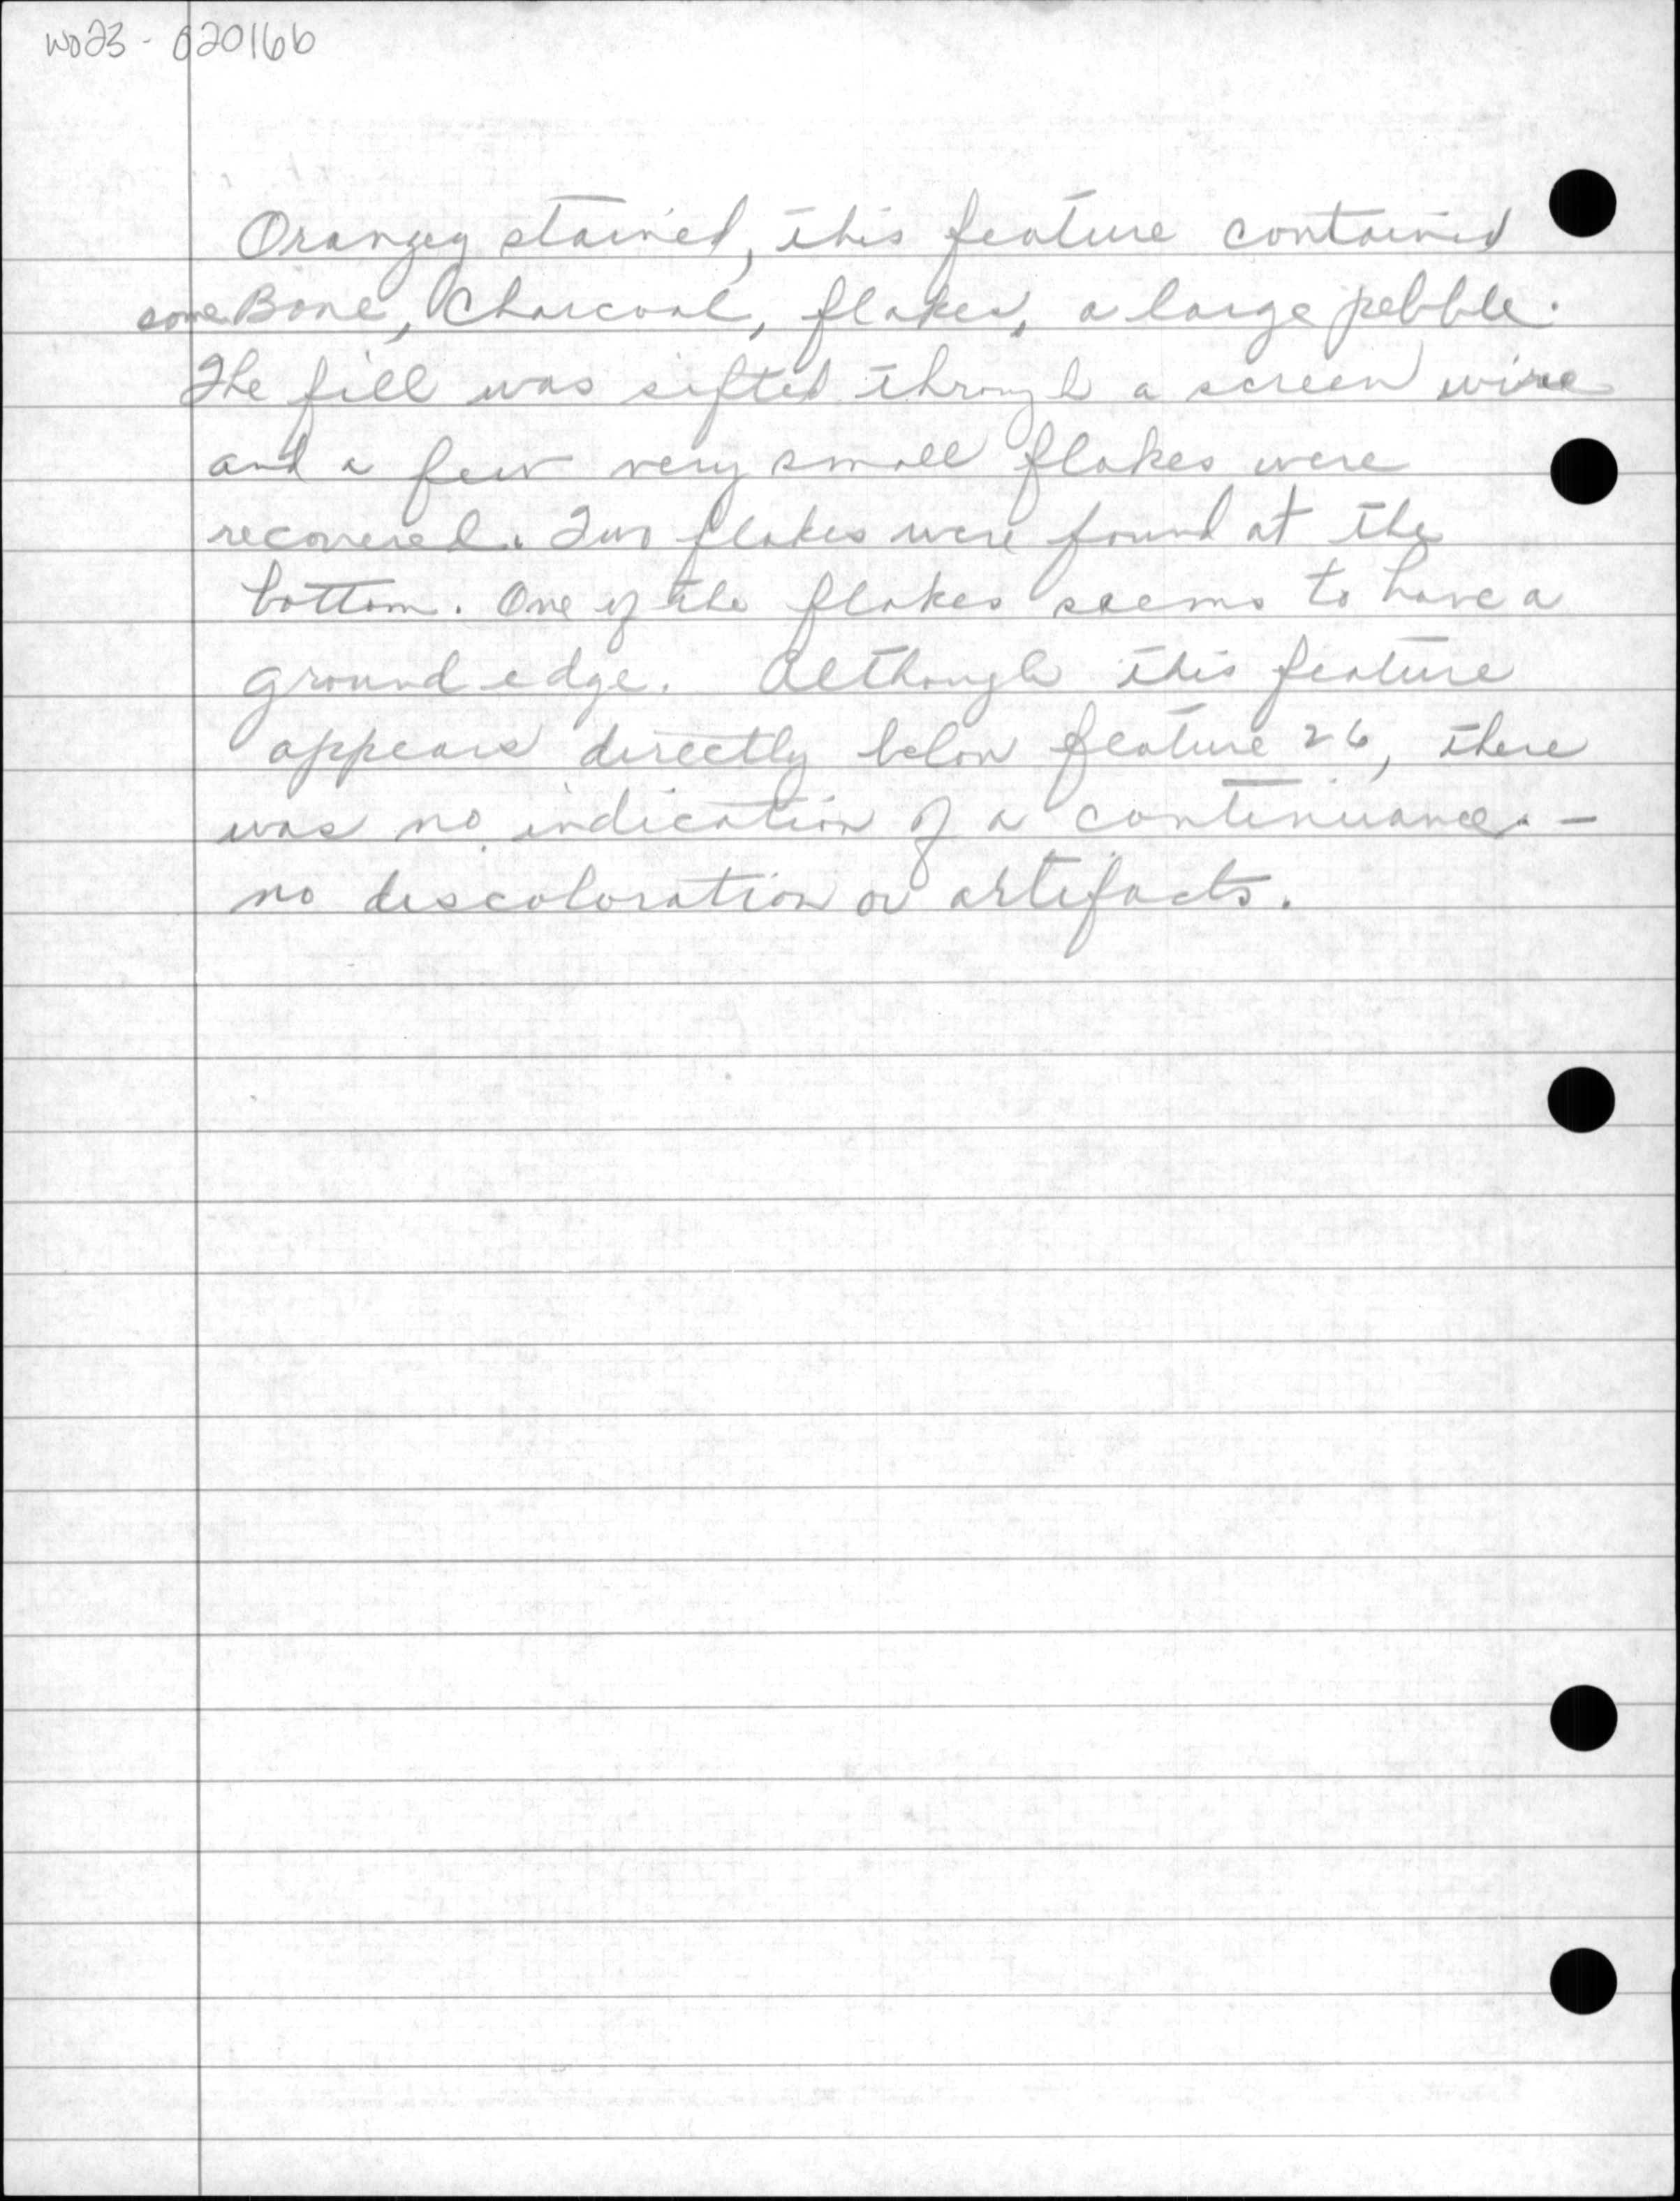 W023-020166
Orangey stained, this feature contained
some Bone, Charcoal, flakes, a large pebble.
The fill was sifted through a screen wire
and a few very small flakes were
recovered. Two flakes were found at the
bottom. One of the flakes seems to have a
ground edge. Although this feature
appears directly below feature 26, there
was no indication of a continuance. -
no discoloration or artifacts.